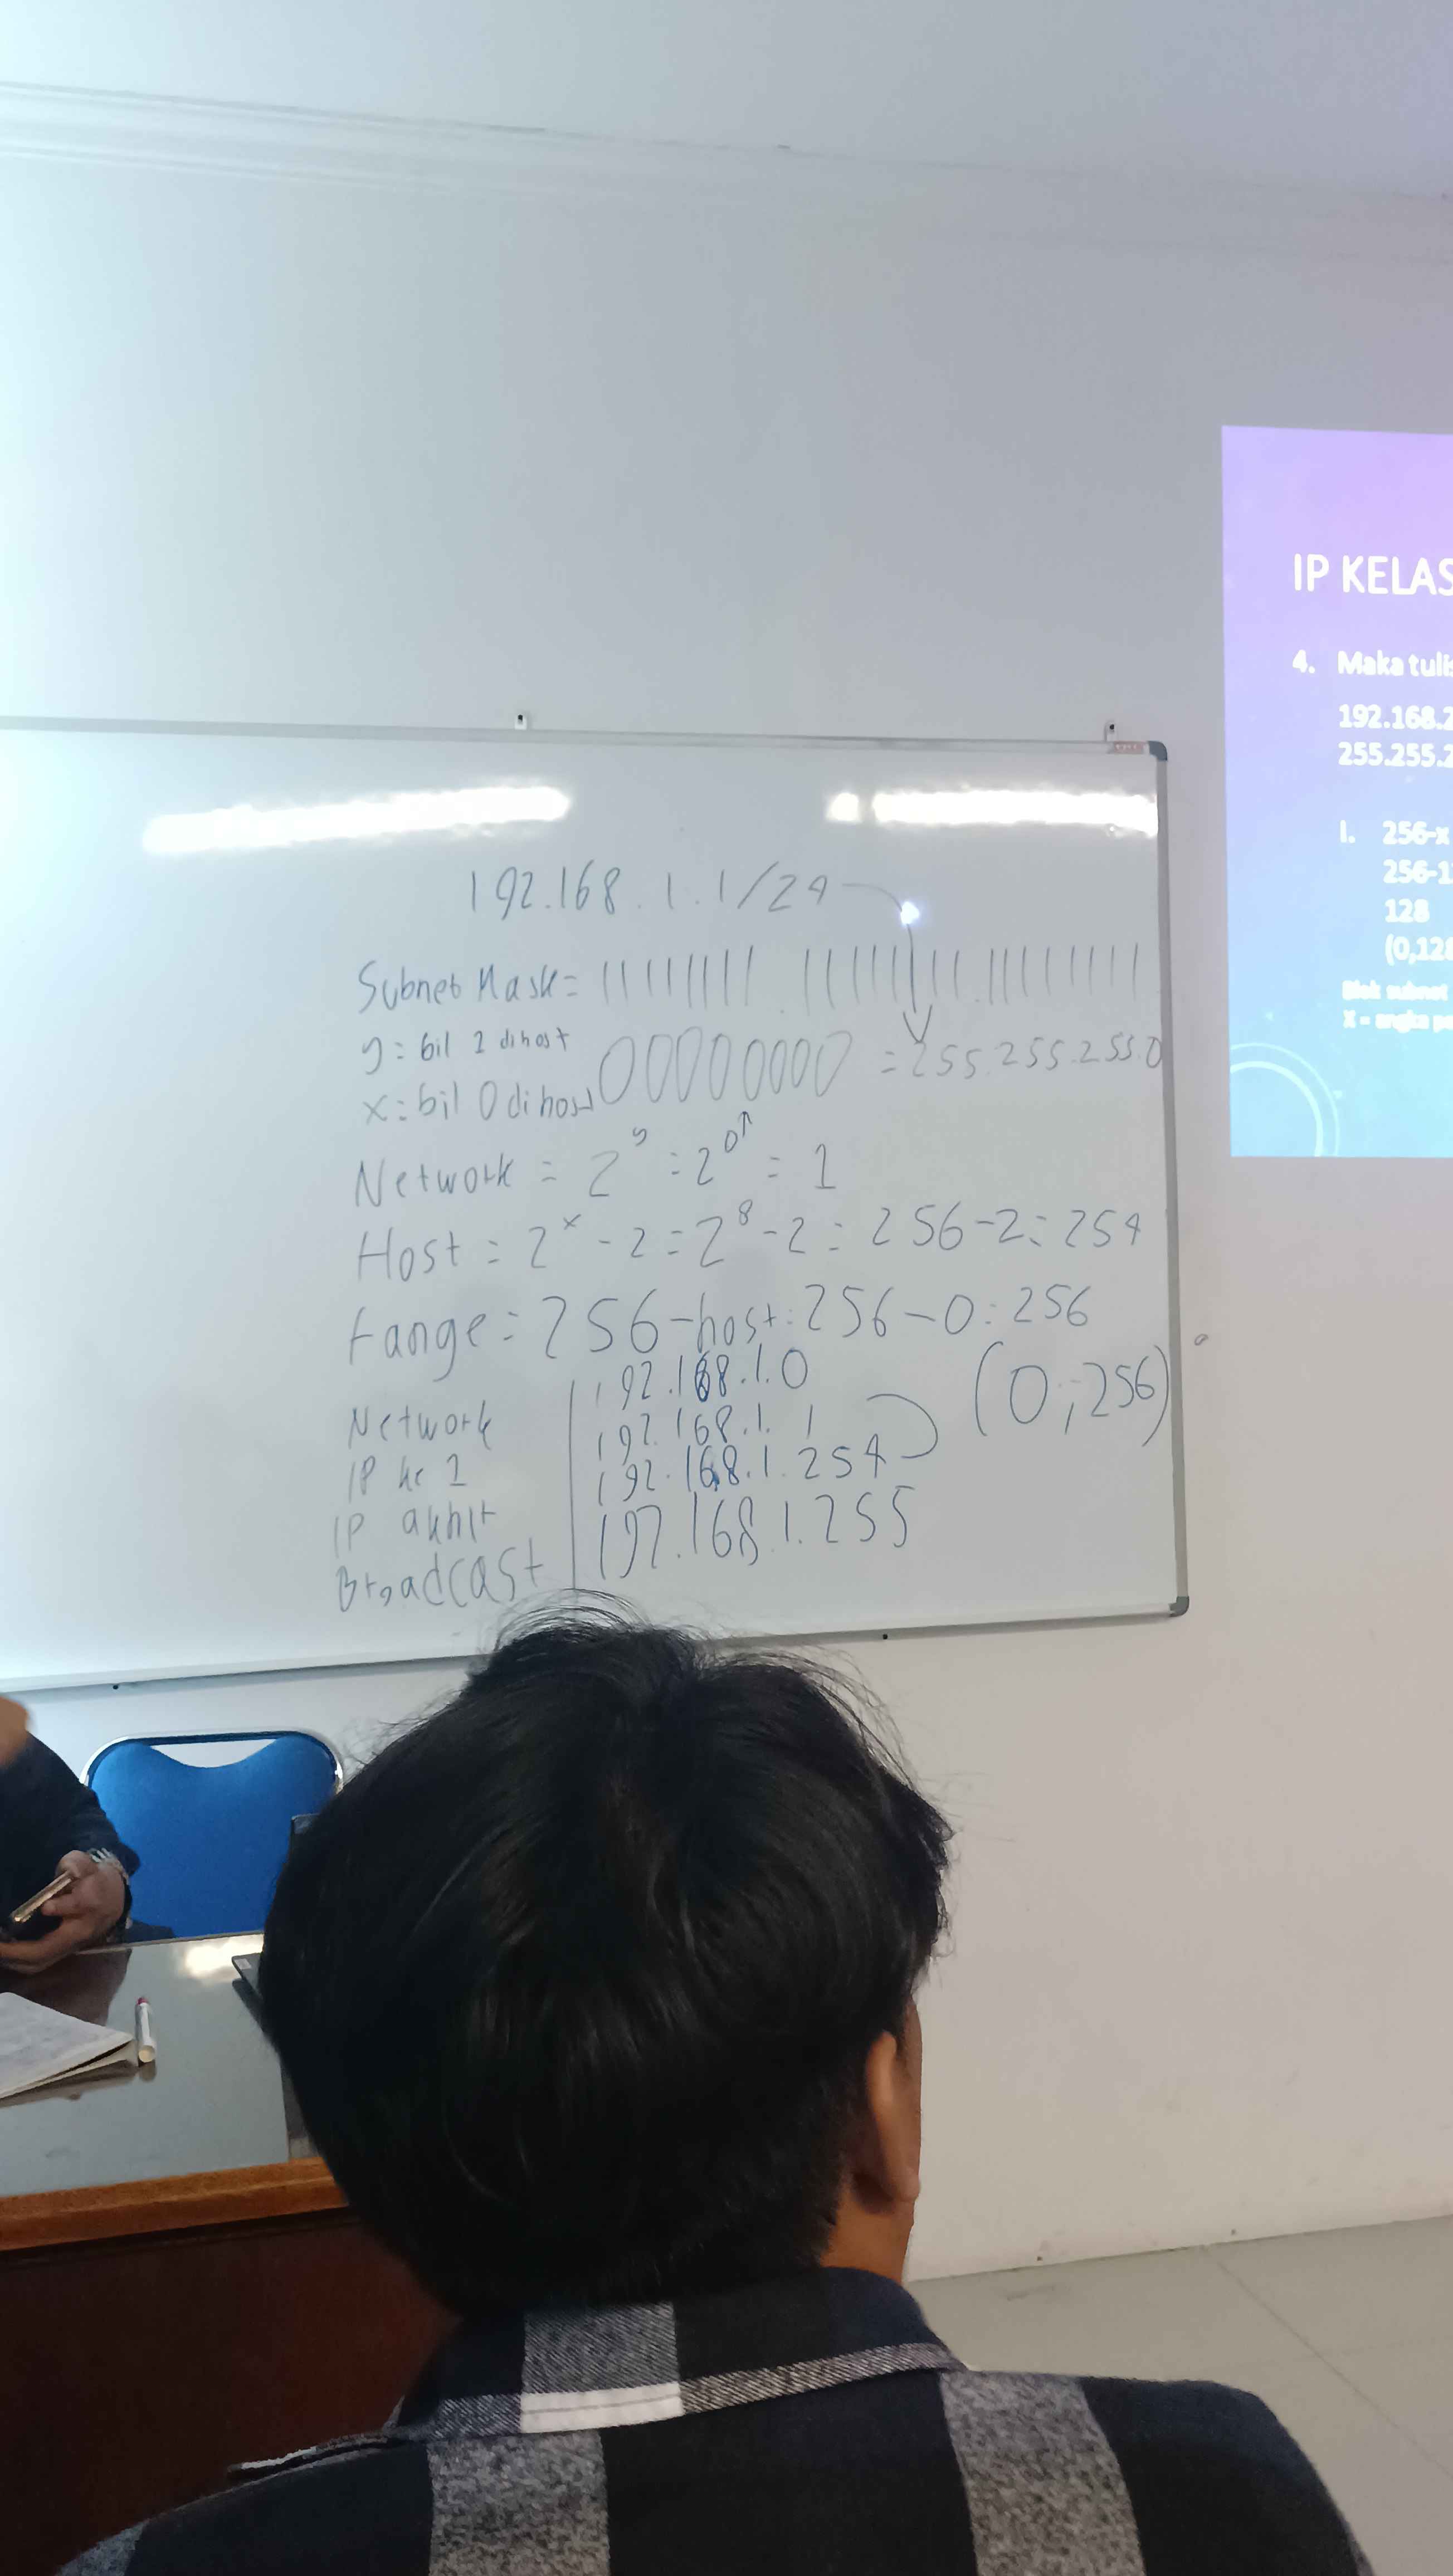 192.168.1.1/24
Subnet Mask = 11111111 11111111.11111111
y = bil 1 dihost
x = bil 0 di host 00000000 = 255.255.255.0
Network = 2^y = 2^0 = 1
Host = 2^x - 2 = 2^8 - 2 = 256 - 2 = 254
range = 256 - host = 256 - 0 = 256
(0,256)
Network 192.168.1.0
IP ke 1 192.168.1.1
IP akhir 192.168.1.254
Broadcast 192.168.1.255
IP KELAS
4. Maka tulis
192.168.2
255.255.2
I. 256-x
256-1
128
(0,128
Blok subnet
X = angka pe